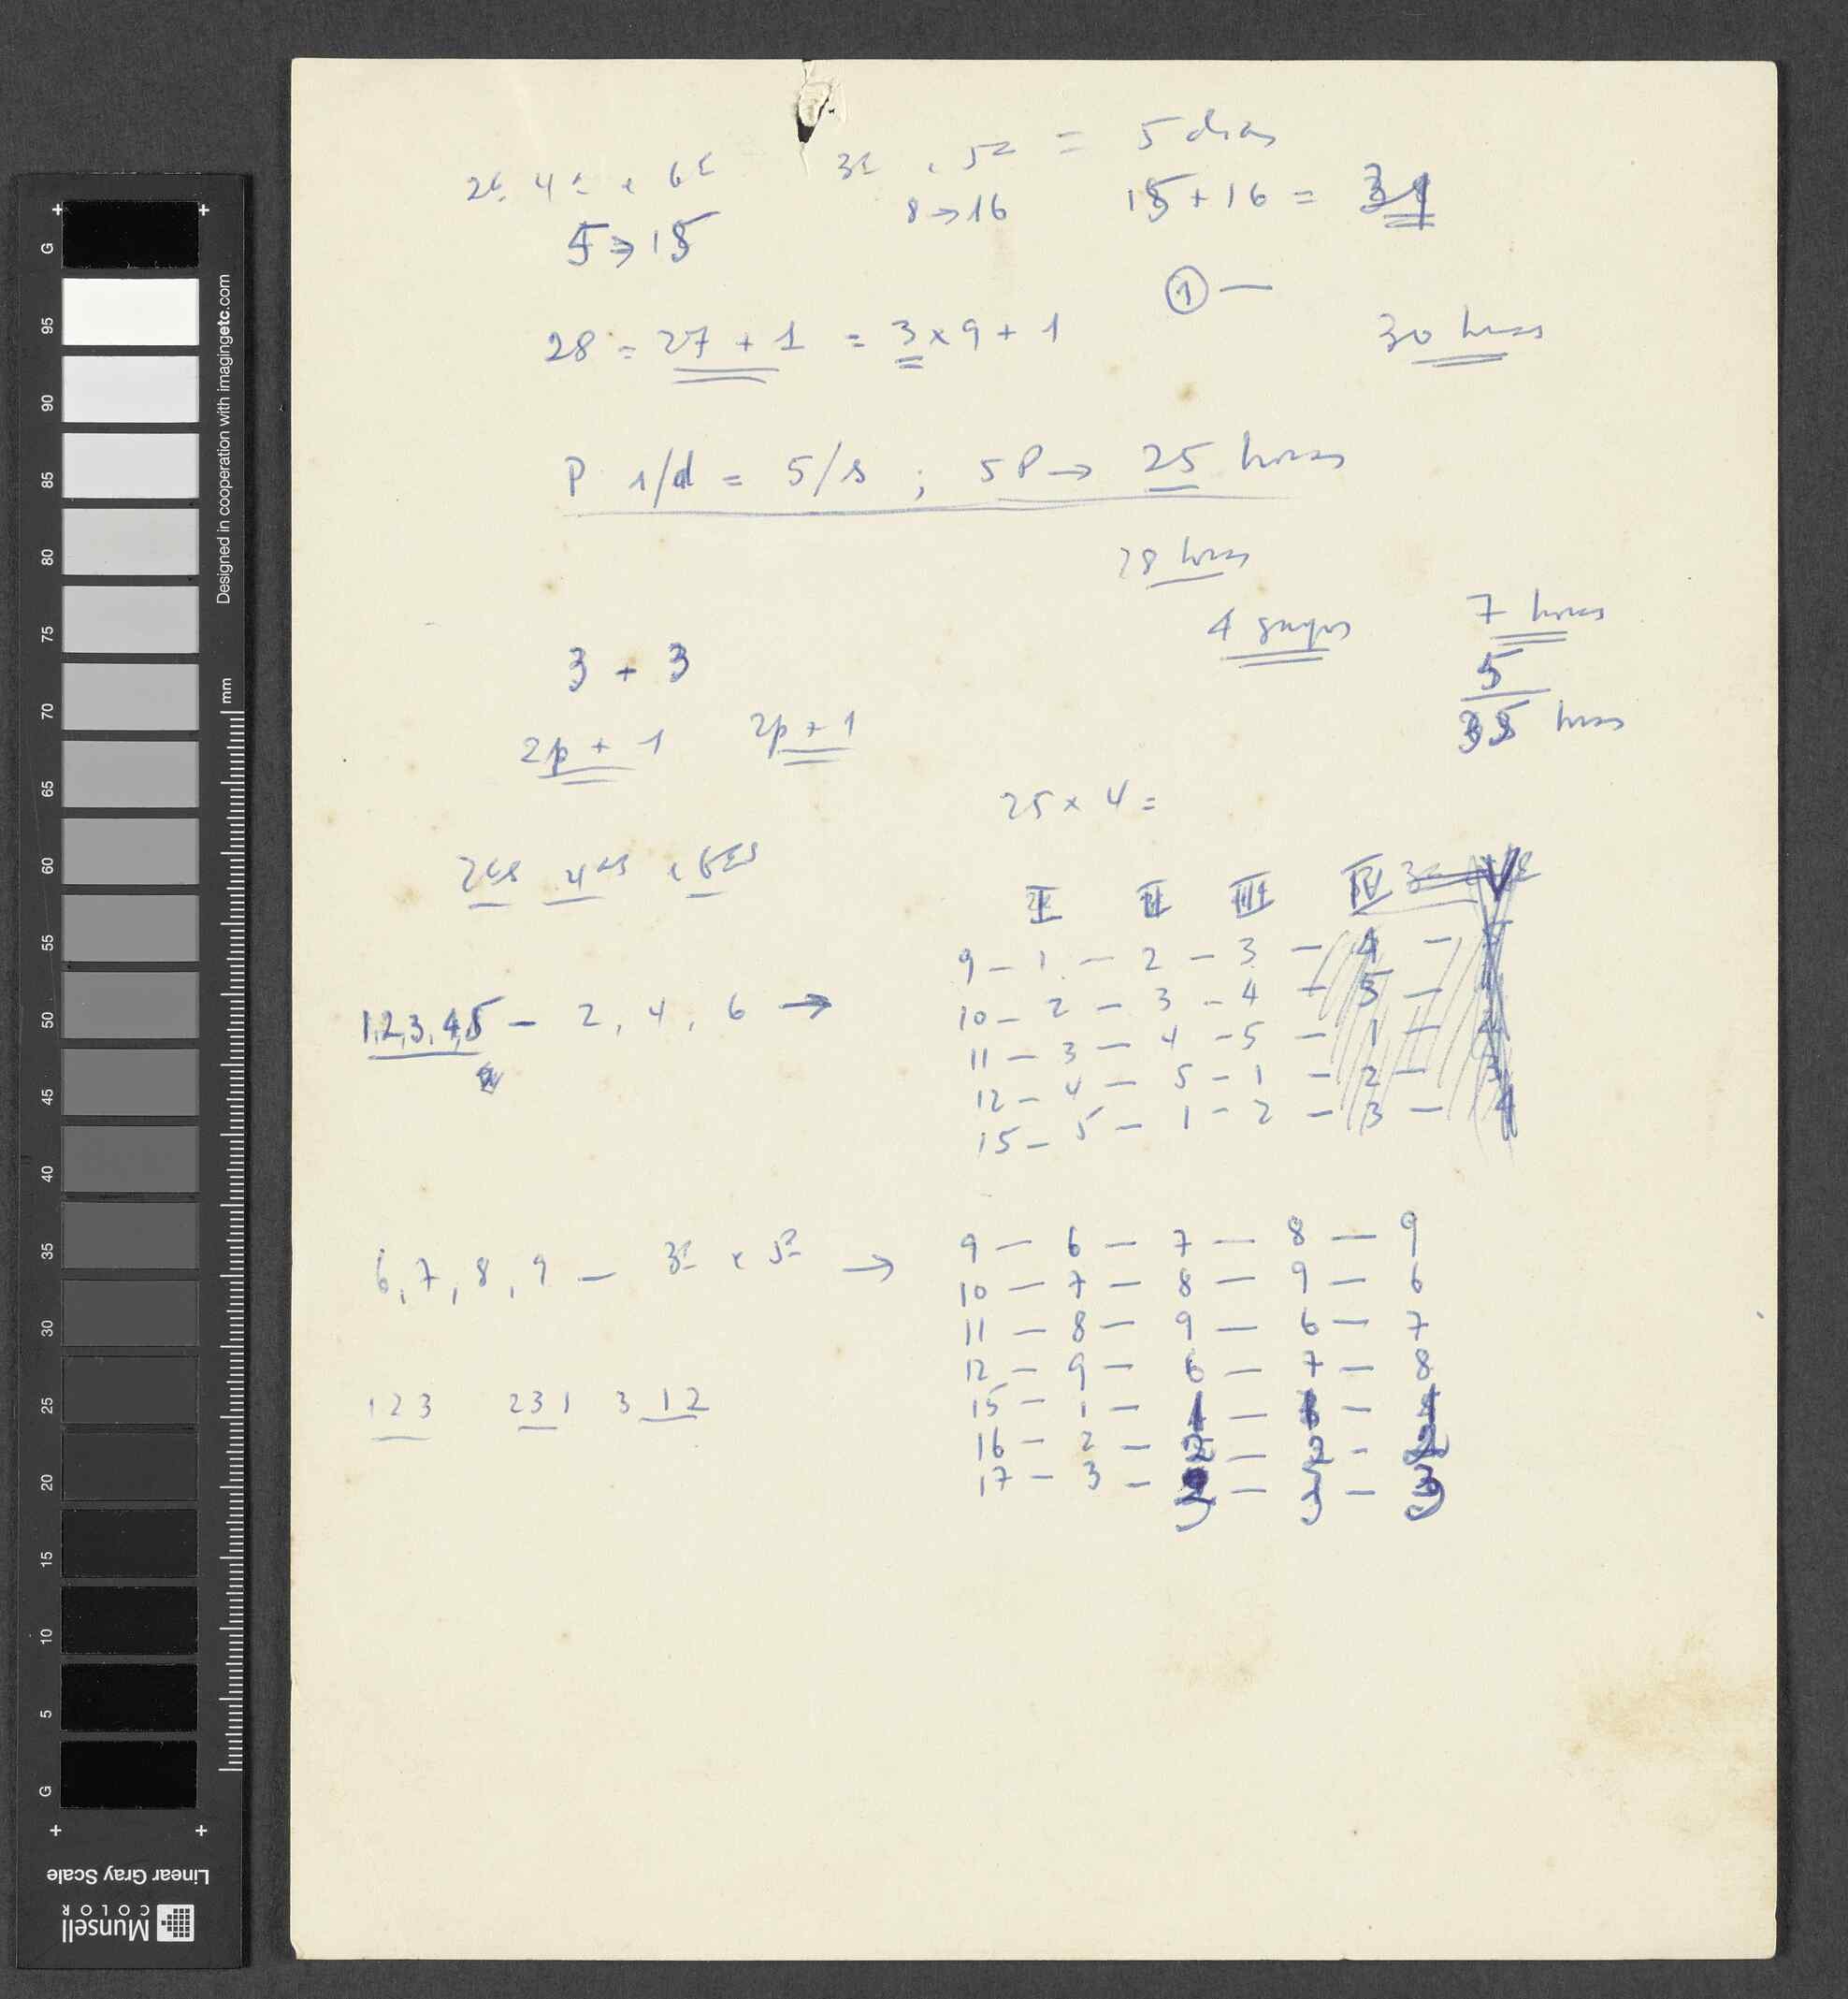 2ª, 4ª e 6ª 3ª e 5ª = 5 dias
5 → 15 8 → 16 15 + 16 = 31
① —
28 = 27 + 1 = 3 × 9 + 1 30 horas
P 1/d = 5/s ; 5P → 25 horas
28 horas
4 grupos 7 horas
3 + 3 5
2p + 1 2p + 1 35 horas
25 × 4 =
2as 4as e 6as
I II III IV V
9 – 1 – 2 – 3 – 4 – 5
1,2,3,4,5 – 2, 4, 6 →
10 – 2 – 3 – 4 – 5 – 1
11 – 3 – 4 – 5 – 1 – 2
12 – 4 – 5 – 1 – 2 – 3
15 – 5 – 1 – 2 – 3 – 4
6, 7, 8, 9 – 3ª e 5ª →
9 – 6 – 7 – 8 – 9
10 – 7 – 8 – 9 – 6
11 – 8 – 9 – 6 – 7
12 – 9 – 6 – 7 – 8
123 231 312
15 – 1 – 1 – 1 – 1
16 – 2 – 2 – 2 – 2
17 – 3 – 3 – 3 – 3
G 95 90 85 80 75 70 65 60 55 50 45 40 35 30 25 20 15 10 5 G
Designed in cooperation with imagingetc.com
mm
Linear Gray Scale
Munsell
COLOR